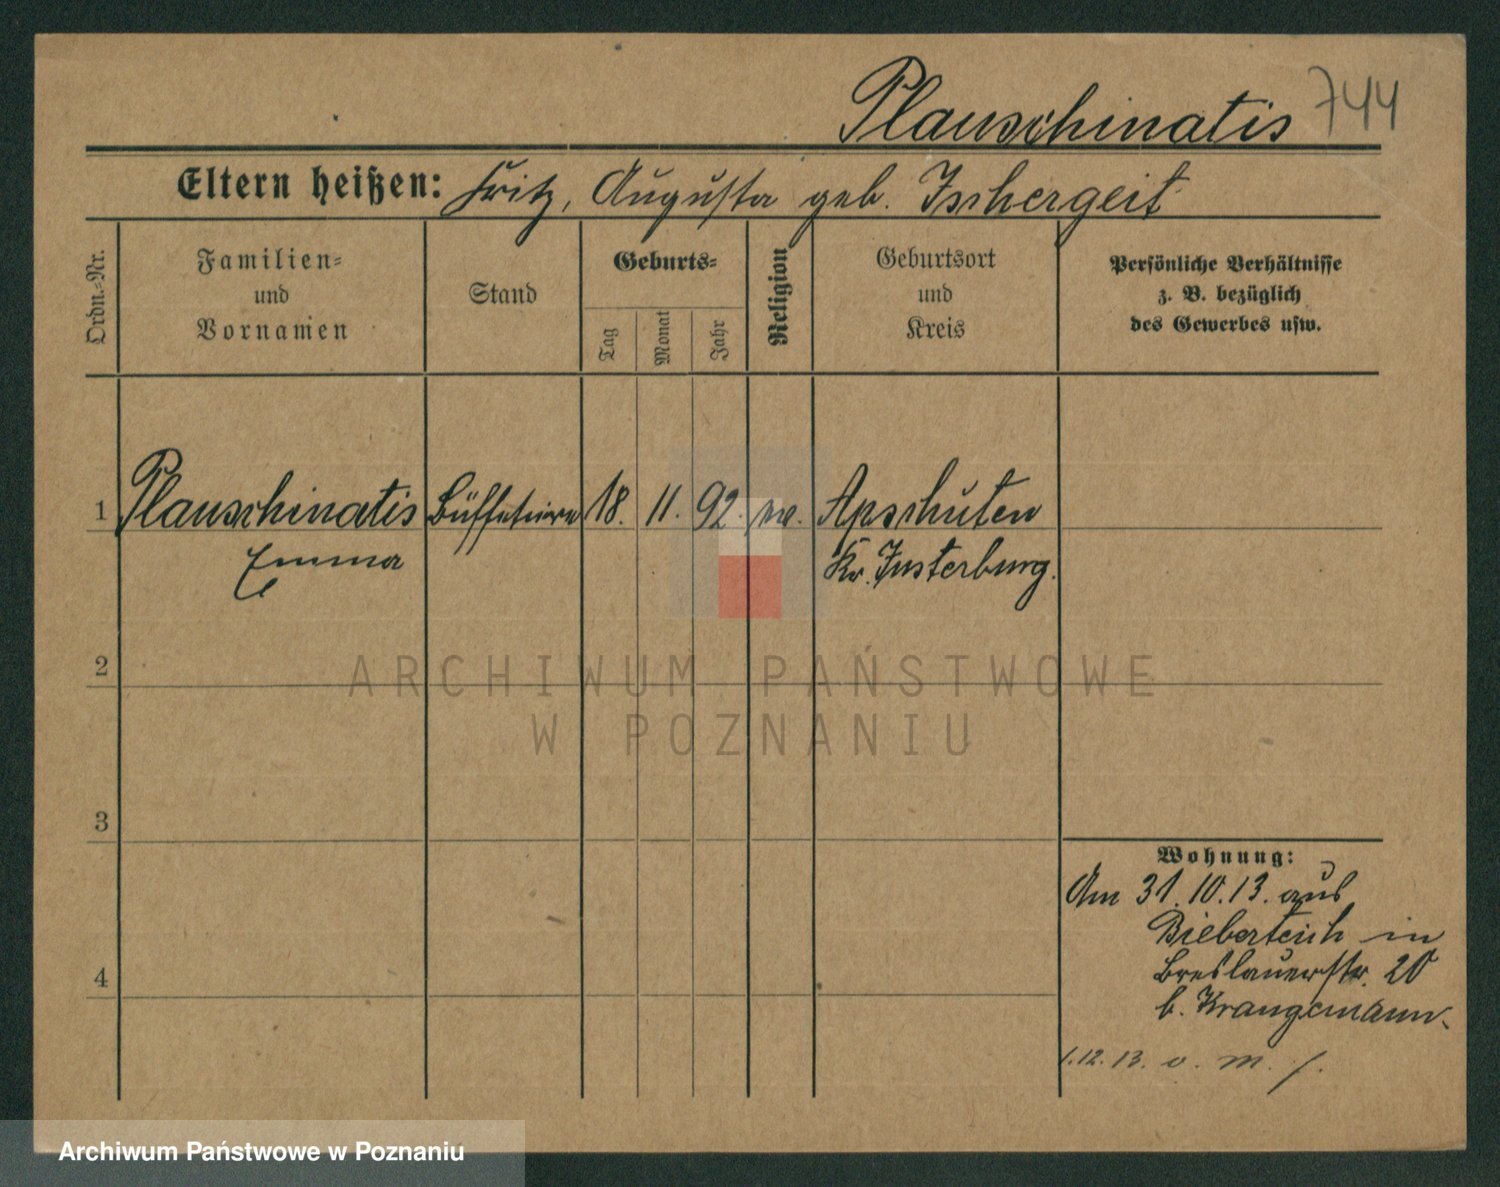 Plauschinatis 744
Eltern heißen: Fritz, Augusta geb. Tschergeit
Ordn.-Nr.
Familien- und Vornamen
Stand
Geburts-
Tag
Monat
Jahr
Religion
Geburtsort und Kreis
Persönliche Verhältnisse
z. B. bezüglich
des Gewerbes usw.
1 Plauschinatis 18. 11. 92. Apschuten
Emma Kr. Insterburg.
2
3
4
Wohnung:
Am 31.10.13. aus
Bieberteich in
Breslauerstr. 20
b. Krangemann
1.12.13. v. m.
ARCHIWUM PAŃSTWOWE
W POZNANIU
Archiwum Państwowe w Poznaniu